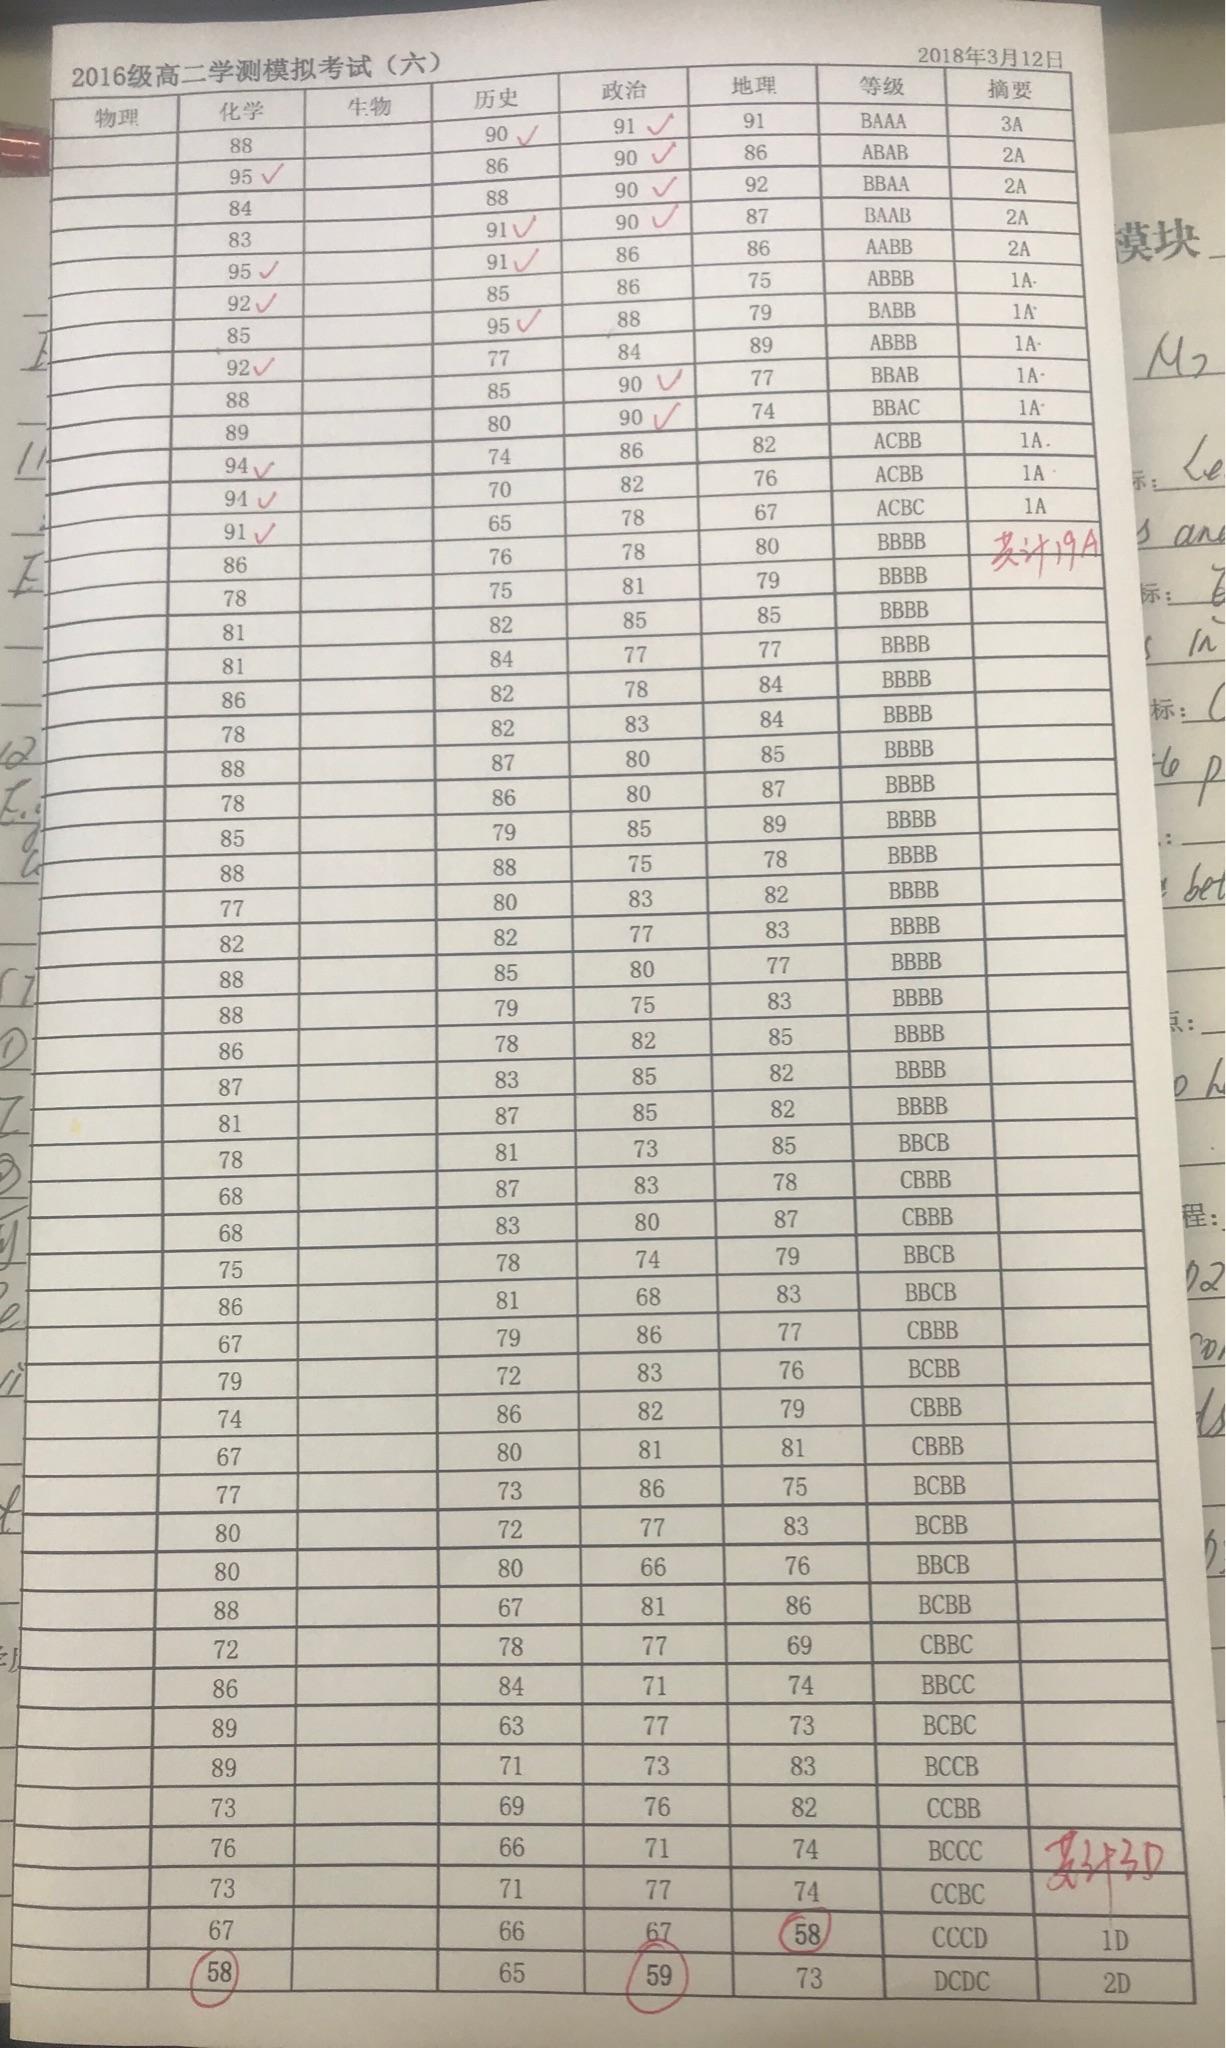 2016级高二学测模拟考试（六） 2018年3月12日
物理 化学 生物 历史 政治 地理 等级 摘要
88 90 ✓ 91 ✓ 91 BAAA 3A
95 ✓ 86 90 ✓ 86 ABAB 2A
84 88 90 ✓ 92 BBAA 2A
83 91 ✓ 90 ✓ 87 BAAB 2A
95 ✓ 91 ✓ 86 86 AABB 2A
92 ✓ 85 86 75 ABBB 1A
85 95 ✓ 88 79 BABB 1A
92 ✓ 77 84 89 ABBB 1A
88 85 90 ✓ 77 BBAB 1A
89 80 90 ✓ 74 BBAC 1A
94 ✓ 74 86 82 ACBB 1A
91 ✓ 70 82 76 ACBB 1A
91 ✓ 65 78 67 ACBC 1A
86 76 78 80 BBBB 共计19A
78 75 81 79 BBBB
81 82 85 85 BBBB
81 84 77 77 BBBB
86 82 78 84 BBBB
78 82 83 84 BBBB
88 87 80 85 BBBB
78 86 80 87 BBBB
85 79 85 89 BBBB
88 88 75 78 BBBB
77 80 83 82 BBBB
82 82 77 83 BBBB
88 85 80 77 BBBB
88 79 75 83 BBBB
86 78 82 85 BBBB
87 83 85 82 BBBB
81 87 85 82 BBBB
78 81 73 85 BBCB
68 87 83 78 CBBB
68 83 80 87 CBBB
75 78 74 79 BBCB
86 81 68 83 BBCB
67 79 86 77 CBBB
79 72 83 76 BCBB
74 86 82 79 CBBB
67 80 81 81 CBBB
77 73 86 75 BCBB
80 72 77 83 BCBB
80 80 66 76 BBCB
88 67 81 86 BCBB
72 78 77 69 CBBC
86 84 71 74 BBCC
89 63 77 73 BCBC
89 71 73 83 BCCB
73 69 76 82 CCBB
76 66 71 74 BCCC 共计3D
73 71 77 74 CCBC
67 66 67 58 CCCD 1D
58 65 59 73 DCDC 2D
模块
标:
and
标:
in
标:
bet
点:
程: